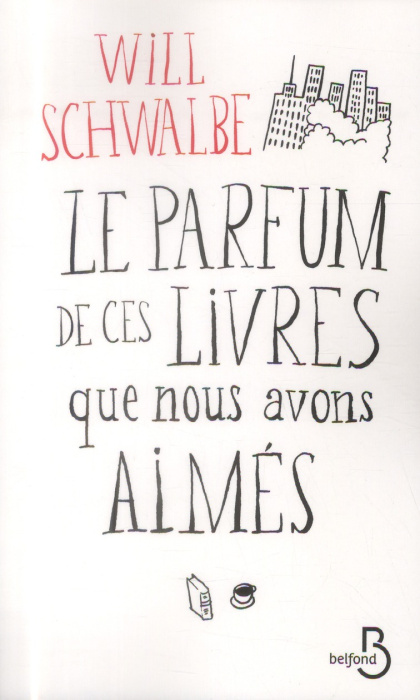 WiLL
SCHWALBE
LE PARFUM
DE CES LiVRES
que nous avons
AiMÉS
belfond